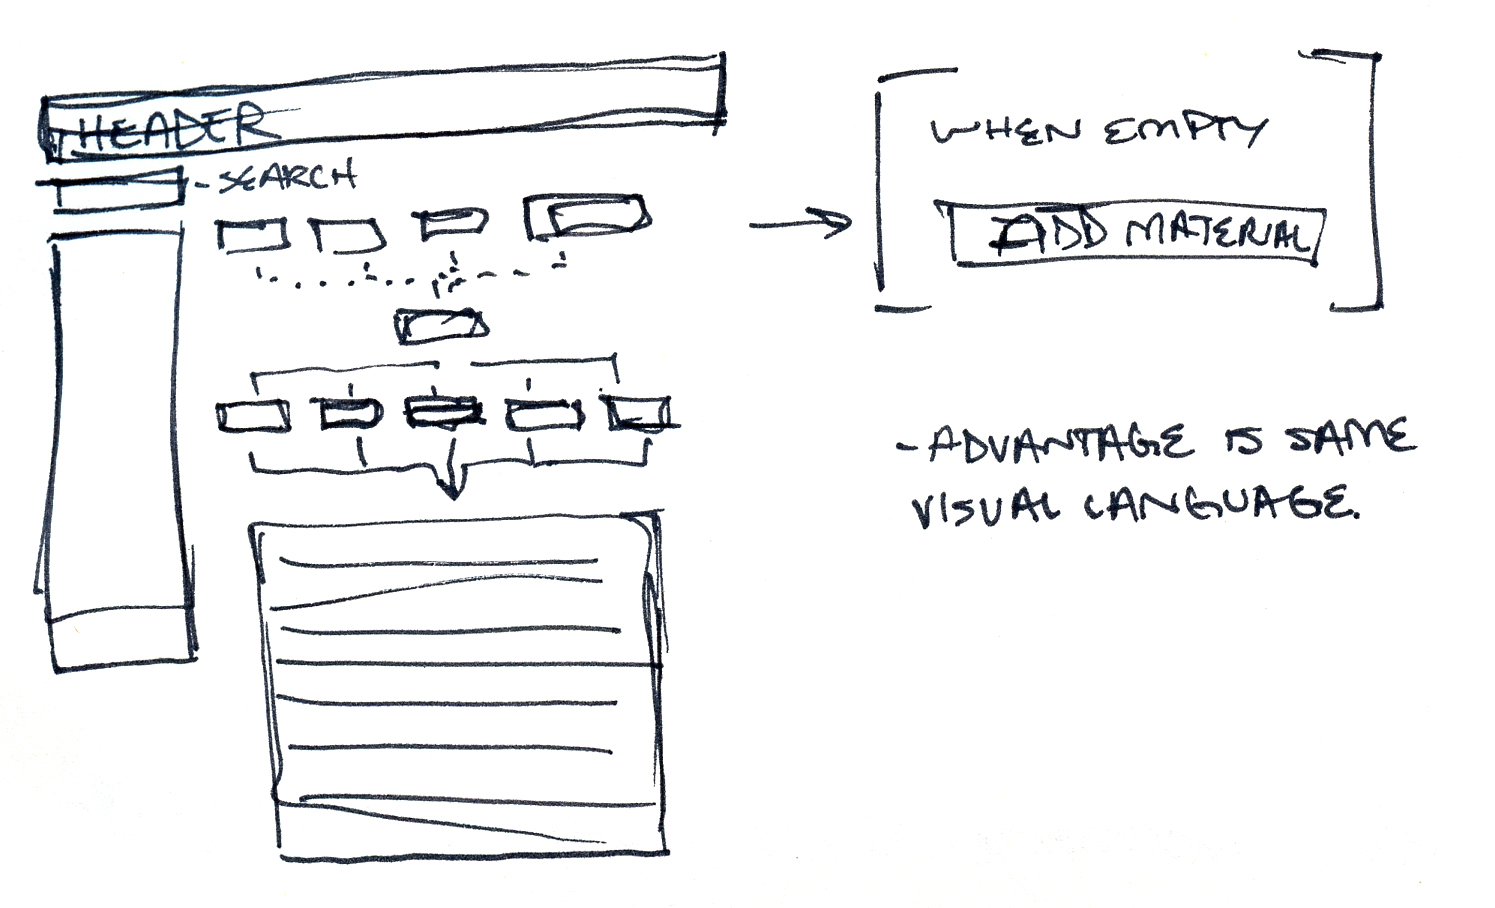 HEADER
- SEARCH
WHEN EMPTY
ADD MATERIAL
- ADVANTAGE IS SAME
VISUAL LANGUAGE.